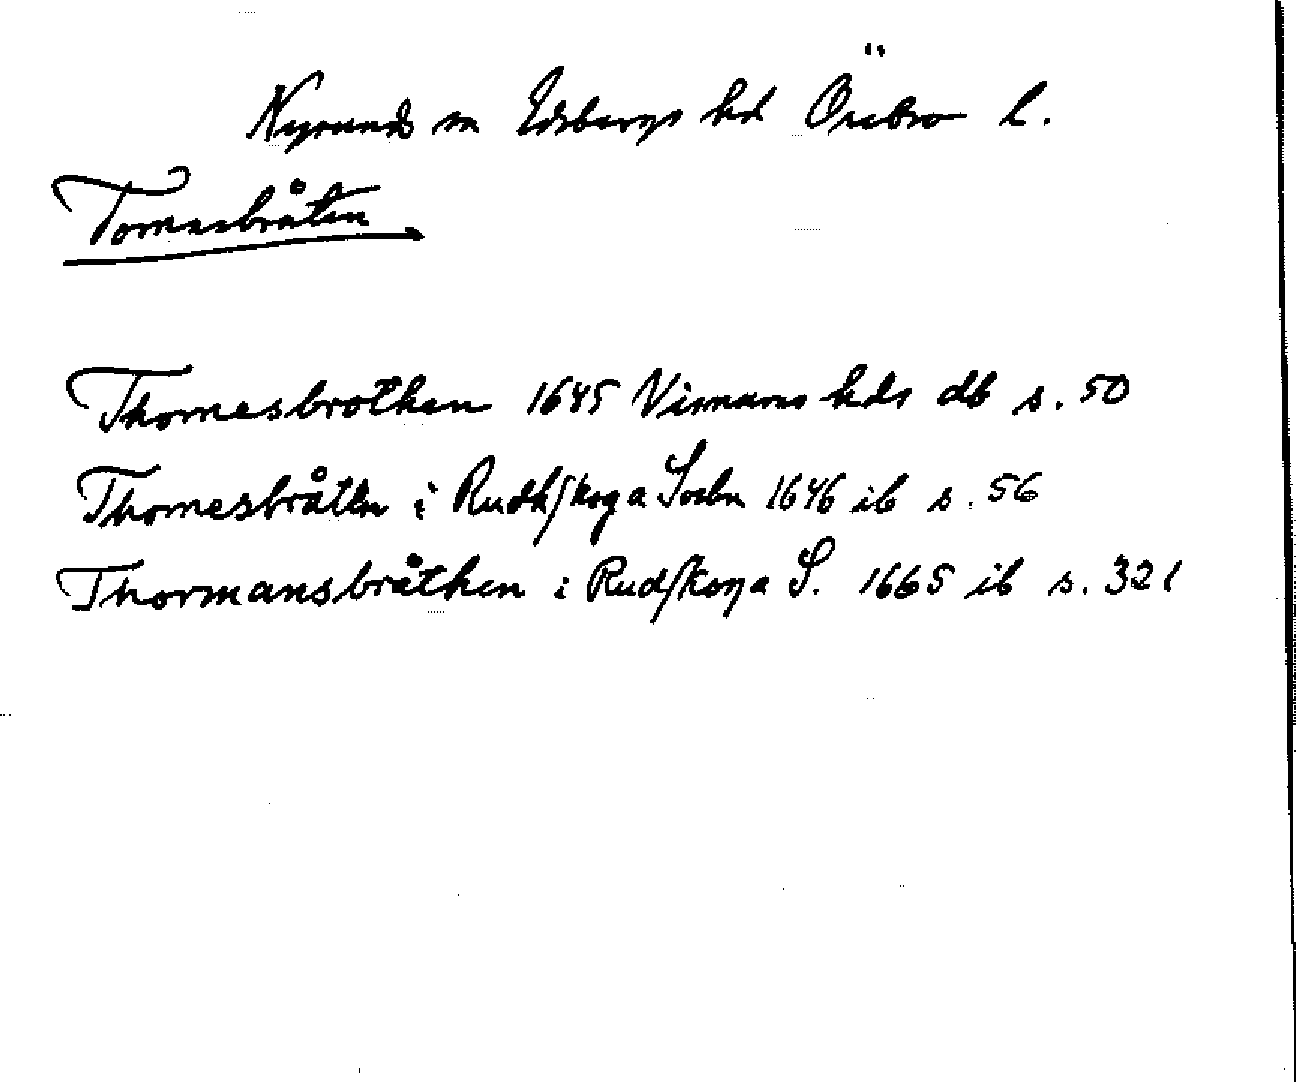 Nysunds sn Edsbergs hd Örebro l.
Tomasbråten
Thomesbrothen 1645 Visnums hds db s. 50
Thomesbråten i Rudhskoga Sochn 1646 ib s. 56
Thormansbråthen i Rudskoga S. 1665 ib s. 321